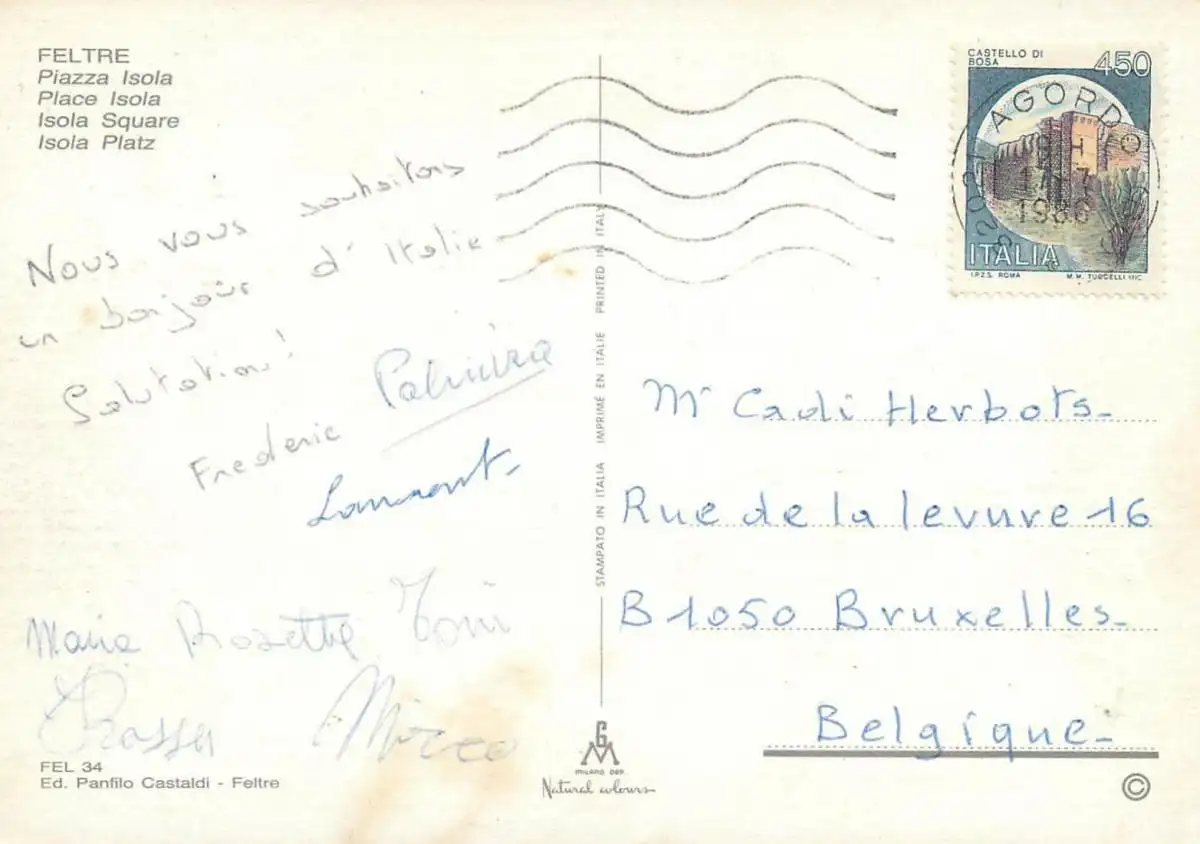 FELTRE
Piazza Isola
Place Isola
Isola Square
Isola Platz
Nous vous souhaitons
un bonjour d'Italie
Salutation!
Frederic
Laurent
Maria Rosetta Toni
Mirco
FEL 34
Ed. Panfilo Castaldi - Feltre
STAMPATO IN ITALIA IMPRIMÉ EN ITALIE PRINTED IN ITALY
MILANO DEP.
Natural colours
CASTELLO DI
BOSA
450
AGORDO
1986
ITALIA
I.P.Z.S. ROMA
Mr Cadi Herbots
Rue de la levure 16
B1050 Bruxelles
Belgique
©